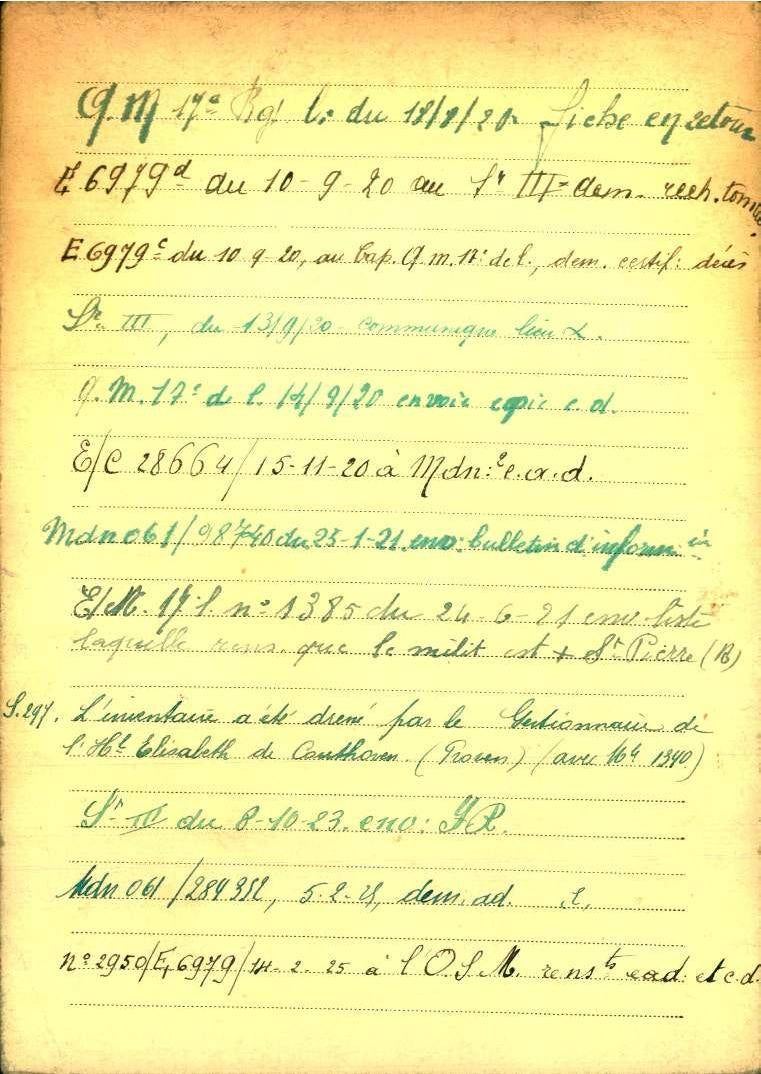 Q.M 17e Rgt L. du 18/8/20. fiche en retour
E 6979d du 10-9-20 au Sr III dem. rech. tombe.
E 6979c du 10 9 20, au Cap. Q.m. 17e de l., dem. certif. décès
Sr III, du 13/9/20 communique lieu
Q.M. 17e de l. 14/9/20 envoie copie c.d.
E/C 28664/15-11-20 à Mdn: e.a.d.
Mdn 061/98740 du 25-1-21 env. bulletin d'inform in
E/M. 17 l. no 1385 du 24-6-21 env. liste
laquelle rens. que le milit est + St Pierre (B)
S.297. L'inventaire a été dressé par le Gestionnaire de
l'Hal Elisabeth de Couthoven (Proven) (avec 1340)
Sr III du 8-10-23. env: J.R.
Mdn 061/284352, 5-2-25, dem. ad.
no 2950/E, 6979/14-2-25 à l'O.S.M. rensts ead. et c.d.